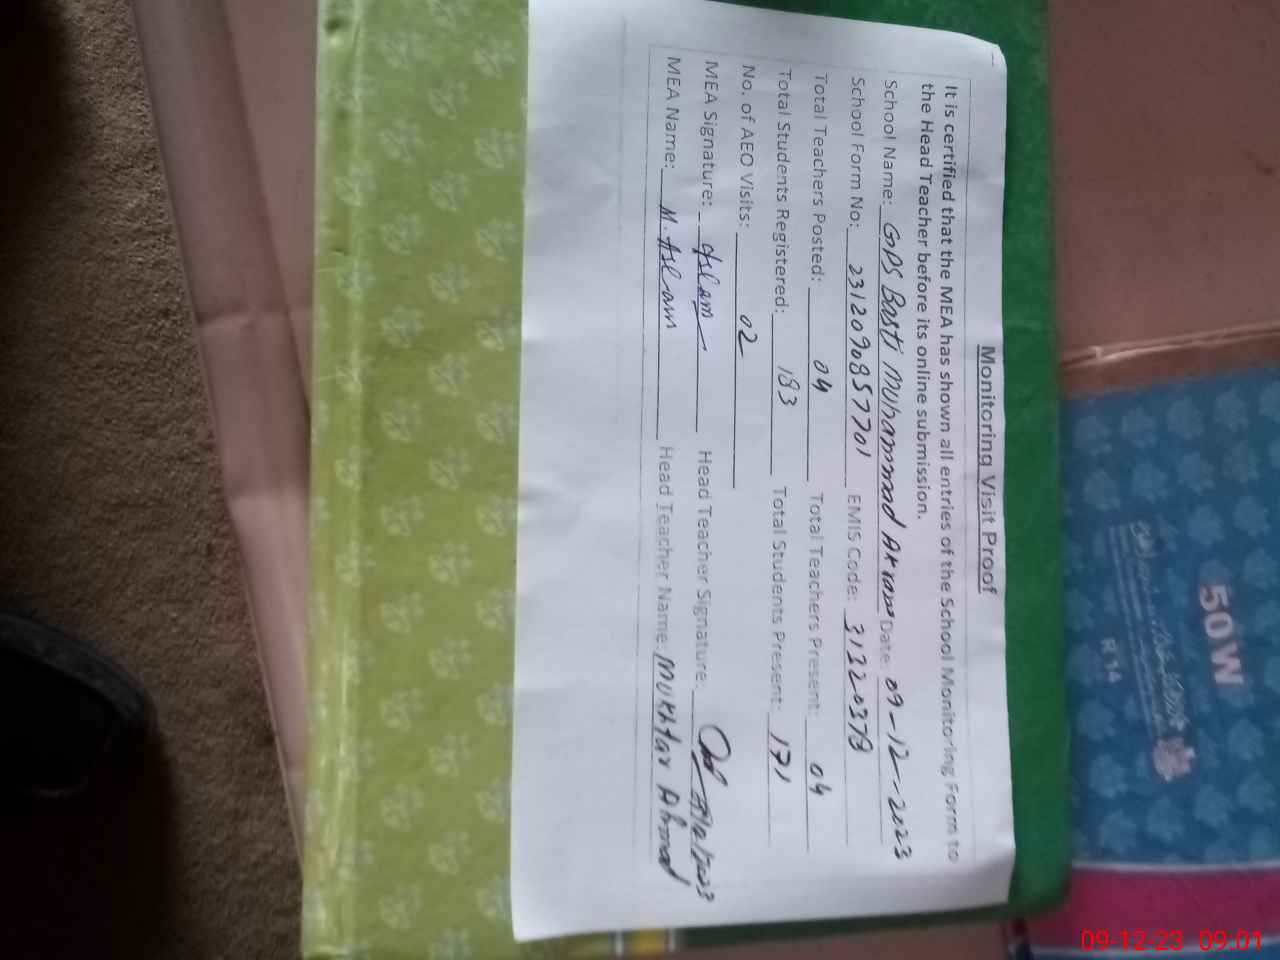 Monitoring Visit Proof
It is certified that the MEA has shown all entries of the School Monitoring Form to
the Head Teacher before its online submission.
School Name: GPS Basti Muhammad Akram Date: 09-12-2023
School Form No: 2312090857701 EMIS Code: 31320378
Total Teachers Posted: 04 Total Teachers Present: 04
Total Students Registered: 183 Total Students Present: 171
No. of AEO Visits: 02
MEA Signature: Aslam Head Teacher Signature:
MEA Name: M. Aslam Head Teacher Name: Mukhtar Ahmad
50W
R.14
09-12-23 09:01